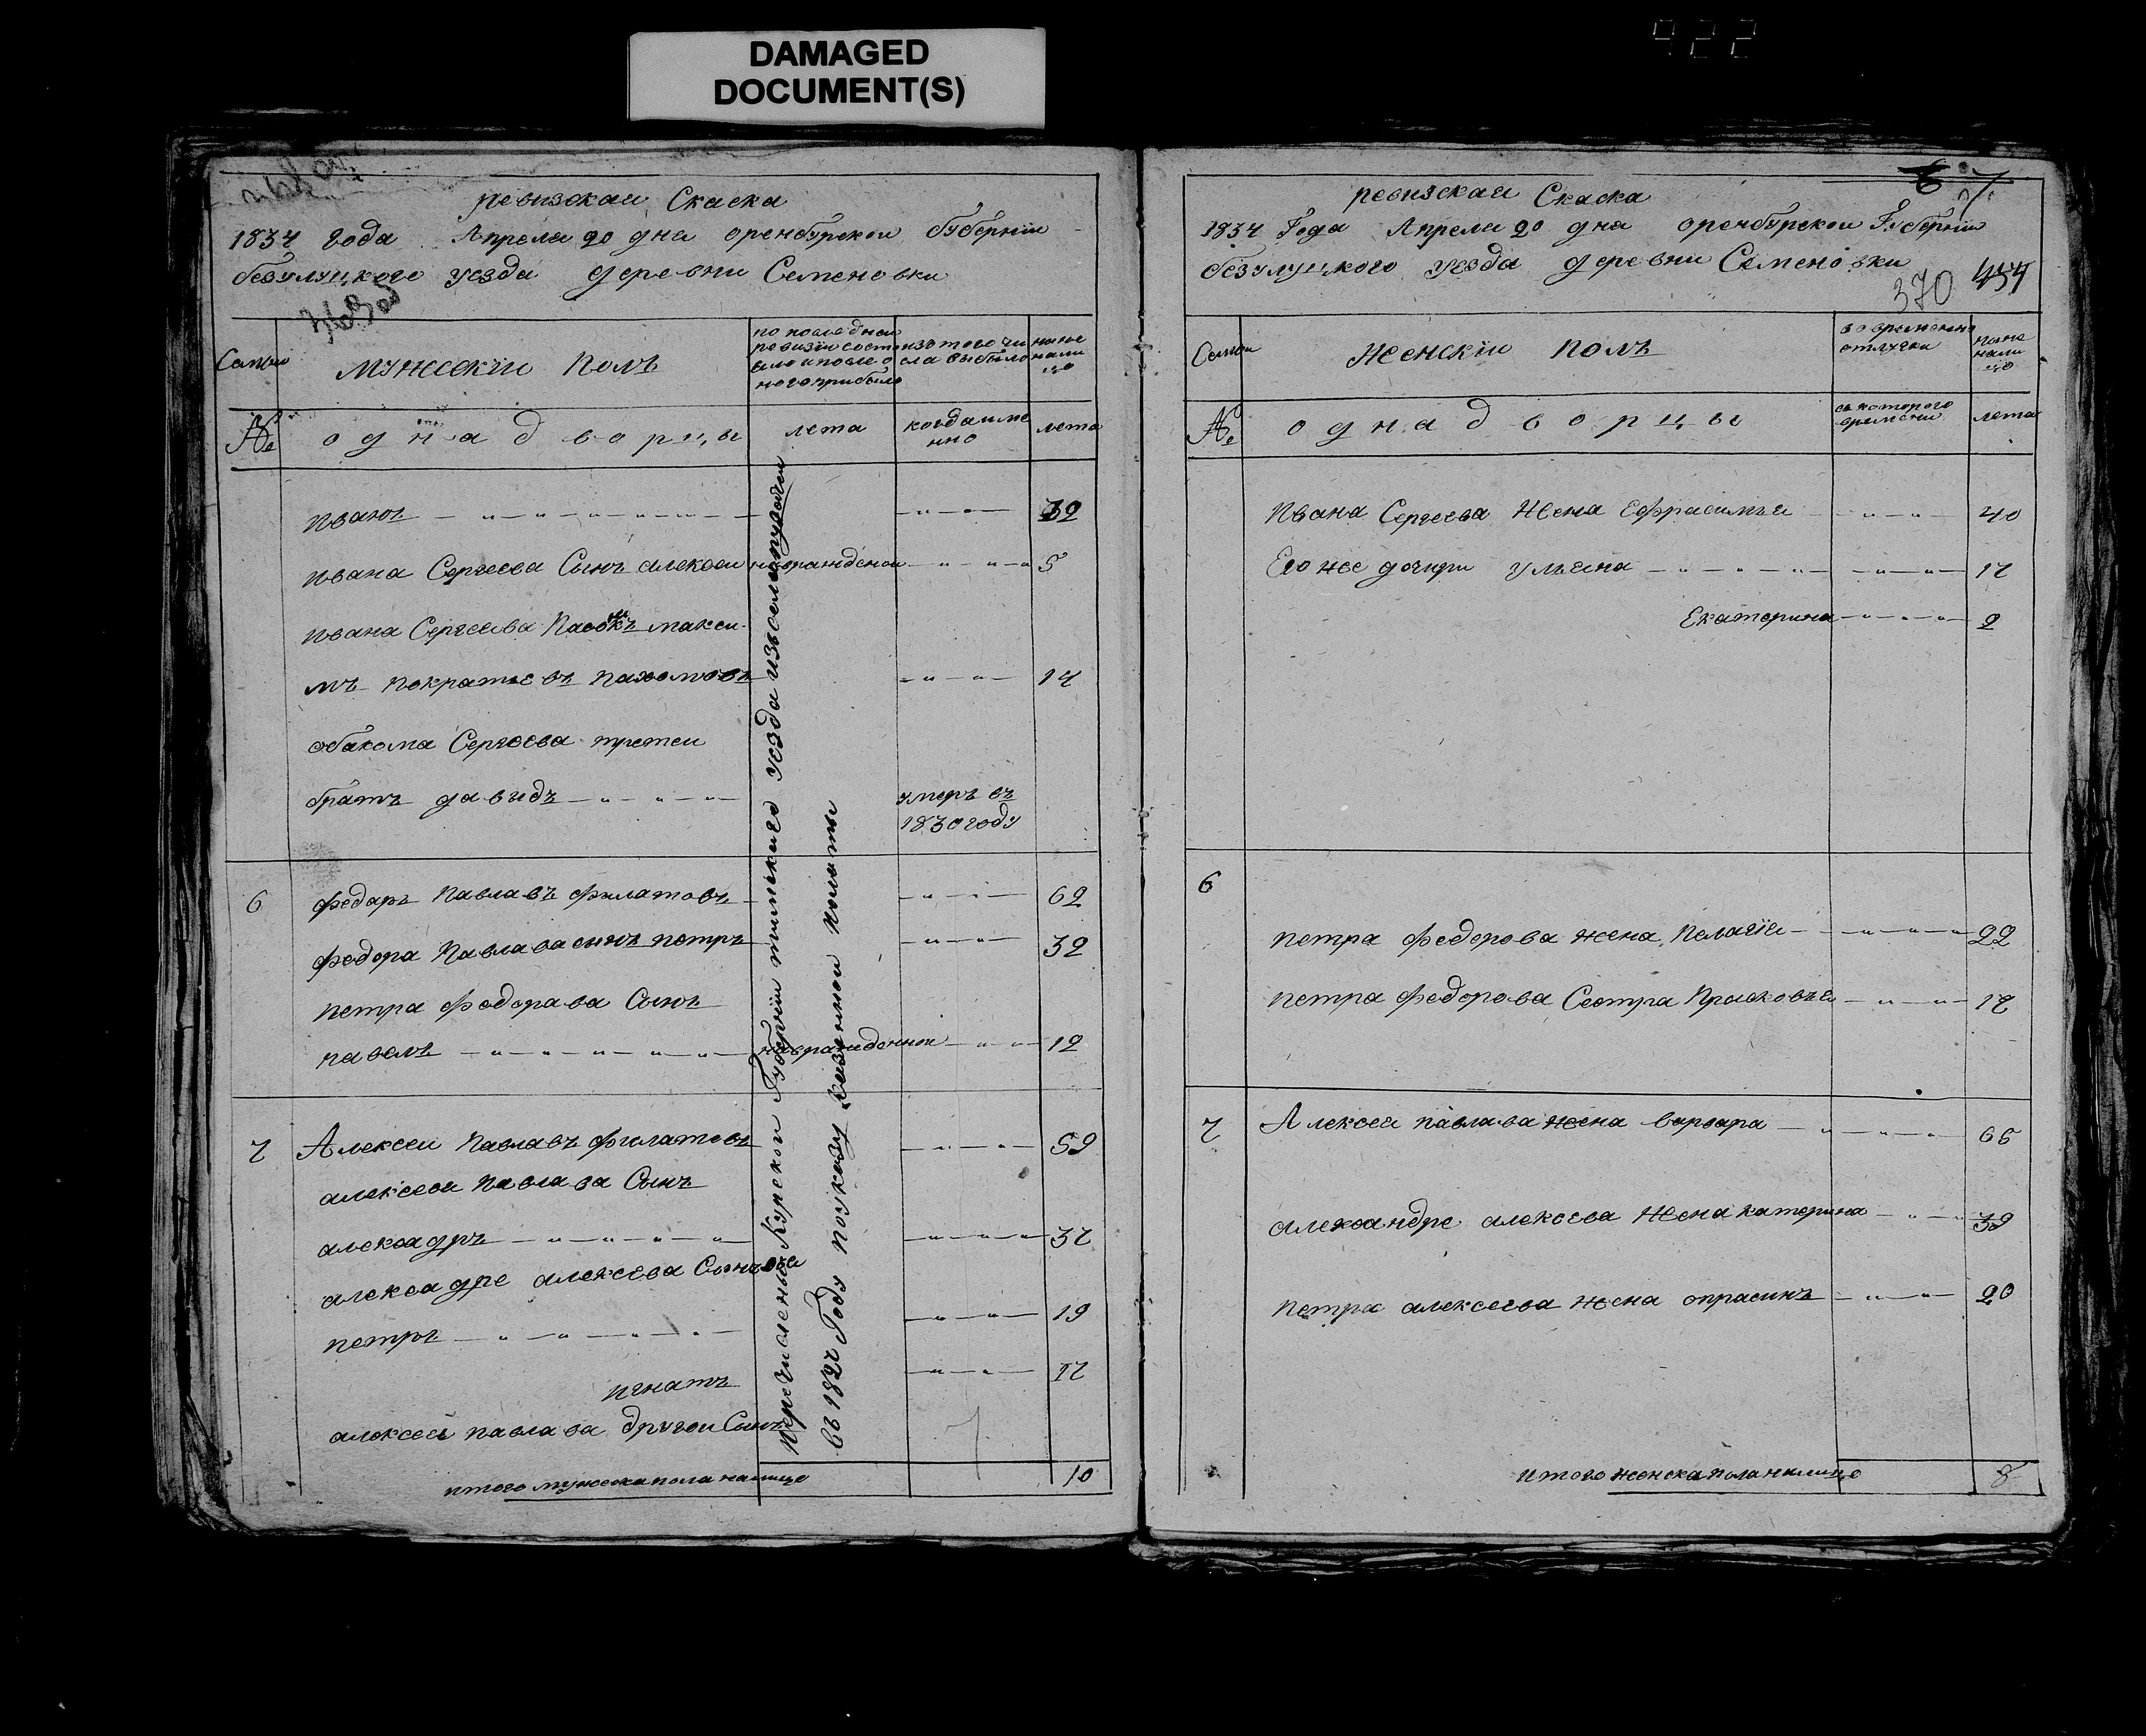 DAMAGED
DOCUMENT(S)
422
ревизская Скаска
1834 года Апреля 20 дня оренбурской Губернии
безулуцкого уезда деревни Семеновки
Семьи
мужеский полъ
по последней
ревизии состо
яло и после о
ного прибыло
изтого чи
сла выбыло
ныне
нали
цо
№
однадворцы
лета
когда име
нно
лета
Иванъ 32
Ивана Сергеева Сынъ алексеи новражденои 5
Ивана Сергеева Пасынокъ макси
мъ пократьевъ пахомовъ 14
абакома Сергеева третеи
братъ давыдъ умеръ въ
1830 году
6 федаръ Павлавъ филатовъ 62
федора Павлава сынъ петръ 32
петра федорава Сынъ
павелъ новражденнои 12
7 Алексеи Павлавъ филатовъ 59
алексея Павлава Сынъ
алексадръ 37
алексадре алексева Сынъ
петръ 19
игнатъ 17
алексея павлава другои Сынъ
итого мужеска пола налицо 10
перечисленые Курской Губернии тимскаго уезда изъ села пузачеи
въ 1827 Году по указу казеннои полаты
ревизская Скаска
1834 Года Апреля 20 дня оренбурской Губернии
безулуцкого уезда деревни Семеновки
6 7
370 454
Семьи
женский полъ
во временно
отлучки
ныне
нали
цо
№
однадворцы
съ которого
времени
лета
Ивана Сергеева Жена Ефрасинья 40
Его же дочири ульяна 17
Екатерина 2
6
петра федорова жена Пелагия 22
петра федорова Сестра Прасковья 17
7 Алексея павлава жена варвара 65
александре алексева Жена катерина 39
петра алексеева жена опрасинъ 20
итого женска пола налицо 8